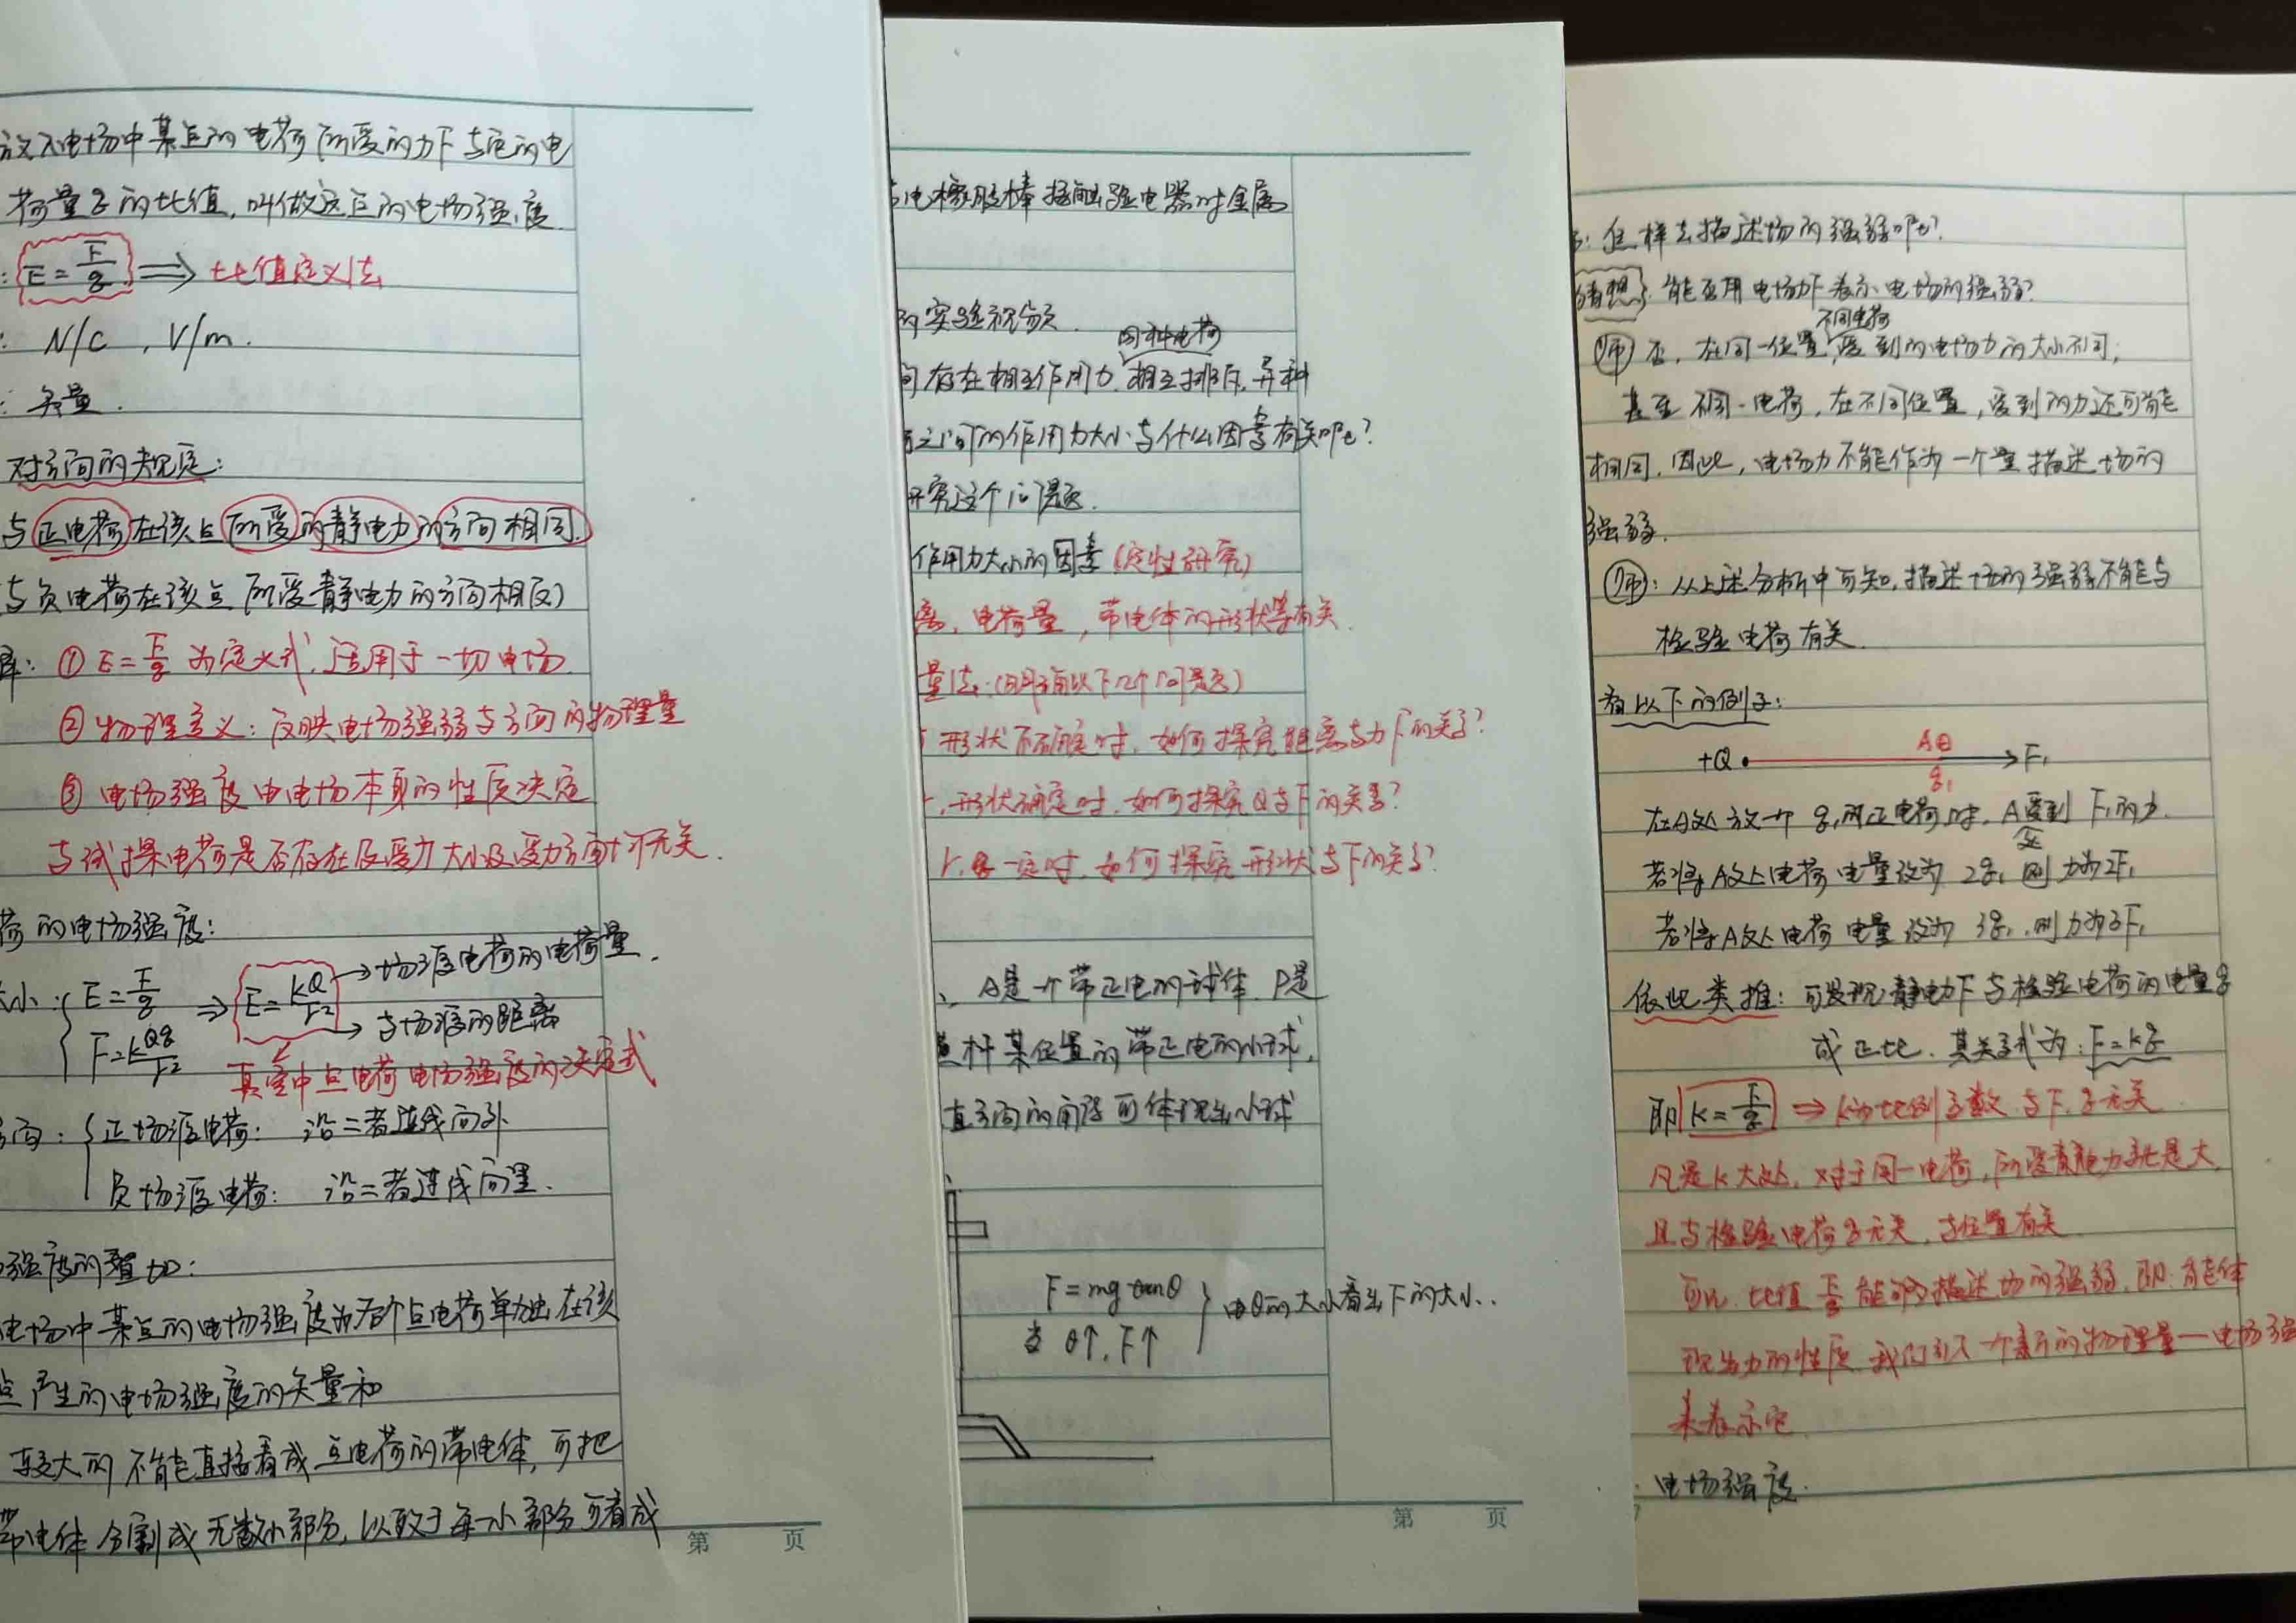 放入电场中某点的电荷所受的力F与它的电
荷量q的比值,叫做这点的电场强度.
: E=F/q ⇒ 比值定义法
: N/C , V/m.
: 矢量.
对方向的规定:
与正电荷在该点所受的静电力的方向相同.
与负电荷在该点所受静电力的方向相反)
: ① E=F/q 为定义式,适用于一切电场.
② 物理意义: 反映电场强弱与方向的物理量
③ 电场强度由电场本身的性质决定
与试探电荷是否存在及受力大小及受力方向均无关.
荷的电场强度:
大小: { E=F/q ⇒ E=kQ/r² → 场源电荷的电荷量.
F=kQq/r² → 与场源的距离
真空中点电荷电场强度的决定式
方向: { 正场源电荷: 沿二者连线向外
负场源电荷: 沿二者连线向里.
强度的叠加:
电场中某点的电场强度为各个点电荷单独在该
点产生的电场强度的矢量和
较大的不能直接看成点电荷的带电体,可把
带电体分割成无数小部分,以致于每一小部分可看成
第 页
电橡胶棒接触验电器时金属
的实验视频.
同种电荷
间存在相互作用力,相互排斥,异种
荷之间的作用力大小与什么因素有关呢?
研究这个问题.
作用力大小的因素(定性研究)
离,电荷量,带电体的形状等有关.
量法:(明确以下几个问题)
形状不确定时,如何探究距离与力F的关系?
r,形状确定时,如何探究Q与F的关系?
r,q一定时,如何探究形状与F的关系?
、A是一个带正电的球体,P是
杆某位置的带正电的小球,
直方向的角度可体现出小球
F=mg tanθ
当 θ↑,F↑
} 由θ的大小看出F的大小.
第 页
: 怎样去描述场的强弱呢?
猜想: 能否用电场力F表示电场的强弱?
不同电荷
师 否,在同一位置,受到的电场力的大小不同;
甚至不同一电荷,在不同位置,受到的力还可能
相同.因此,电场力不能作为一个量描述场的
强弱.
师: 从上述分析中可知,描述场的强弱不能与
检验电荷有关.
看以下的例子:
+Q A⊕ q₁ F₁
在A处放一个q₁的正电荷时,A处受到F₁的力.
若将A处电荷电量改为2q₁则力为2F₁
若将A处电荷电量改为3q₁,则力为3F₁
依此类推: 可发现静电力F与检验电荷的电量q
成正比.其关系式为: F=kq
即 k=F/q ⇒ k为比例系数 与F,q无关.
凡是k大处,对于同一电荷,所受静电力就是大.
且与检验电荷q无关,与位置有关.
可见,比值F/q能够描述场的强弱.即:能体
现出力的性质.我们引入一个新的物理量—电场强
来表示它
: 电场强度.